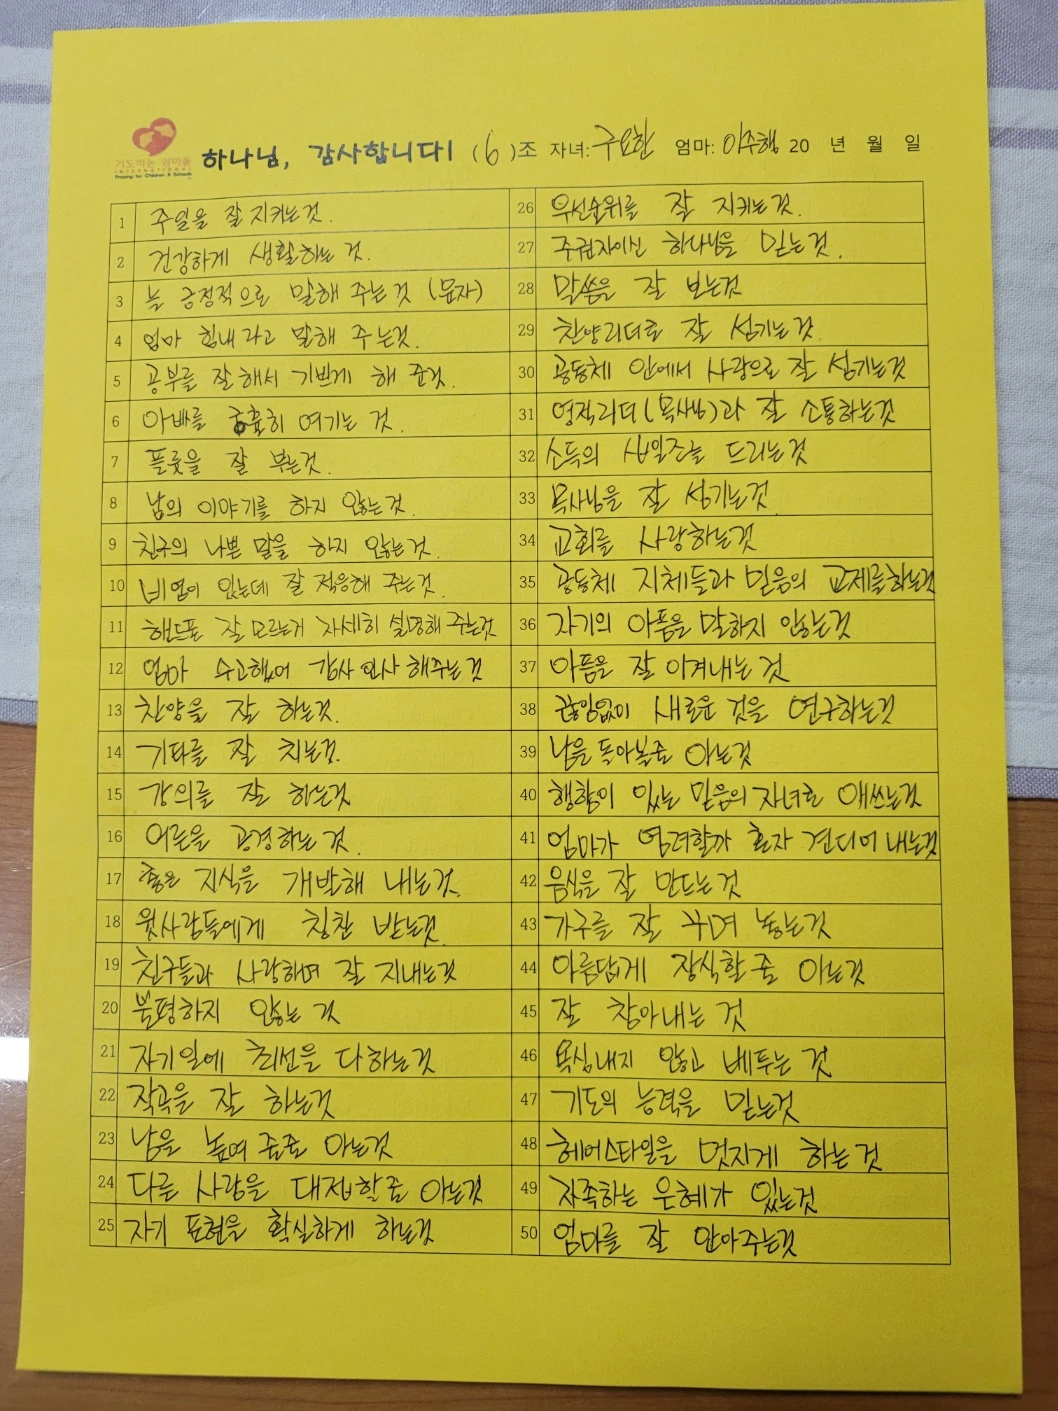 기도하는 엄마들
INTERNATIONAL
Praying for Children & Schools
하나님, 감사합니다! (6)조 자녀: 구요한 엄마: 이수행 20 년 월 일
1 주일을 잘 지키는것.
2 건강하게 생활하는 것.
3 늘 긍정적으로 말해 주는것 (문자)
4 엄마 힘내라고 말해 주는것.
5 공부를 잘해서 기쁘게 해 준것.
6 아빠를 긍휼히 여기는 것.
7 플룻을 잘 부는것.
8 남의 이야기를 하지 않는것.
9 친구의 나쁜 말을 하지 않는것.
10 비염이 있는데 잘 적응해 주는것.
11 핸드폰 잘 모르는거 자세히 설명해 주는것
12 엄마 수고했어 감사 인사 해주는것
13 찬양을 잘 하는것.
14 기타를 잘 치는것.
15 강의를 잘 하는것
16 어른을 공경하는 것.
17 좋은 지식을 개발해 내는것.
18 윗사람들에게 칭찬 받는것.
19 친구들과 사랑하며 잘 지내는것
20 불평하지 않는 것
21 자기일에 최선을 다하는것
22 작곡을 잘 하는것
23 남을 높여 줄줄 아는것
24 다른 사람을 대접할줄 아는것
25 자기 표현을 확실하게 하는것
26 우선순위를 잘 지키는것.
27 주권자이신 하나님을 믿는것.
28 말씀을 잘 보는것
29 찬양리더로 잘 섬기는것.
30 공동체 안에서 사랑으로 잘 섬기는것
31 영적리더(목사님)과 잘 소통하는것
32 소득의 십일조를 드리는것
33 목사님을 잘 섬기는것
34 교회를 사랑하는것
35 공동체 지체들과 믿음의 교제를하는것
36 자기의 아픔을 말하지 않는것
37 아픔을 잘 이겨내는 것
38 끊임없이 새로운 것을 연구하는것
39 남을 돌아볼줄 아는것
40 행함이 있는 믿음의 자녀로 애쓰는것
41 엄마가 염려할까 혼자 견디어 내는것
42 음식을 잘 만드는것
43 가구를 잘 꾸며 놓는것
44 아름답게 장식할 줄 아는것
45 잘 참아내는 것
46 욕심내지 않고 베푸는 것
47 기도의 능력을 믿는것
48 헤어스타일을 멋지게 하는것
49 자족하는 은혜가 있는것
50 엄마를 잘 안아주는것